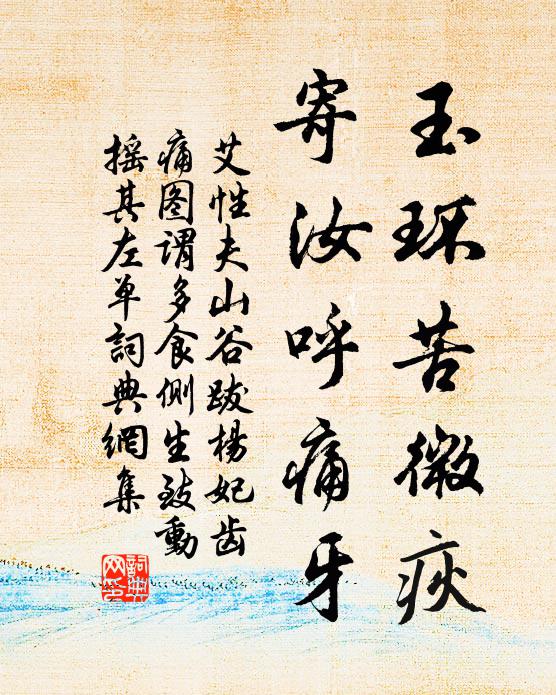 玉环苦微疢
寄汝呼痛牙
艾性夫山谷跋楊妃齿
痛图谓多食侧生致動
摇其左单詞典網集
詞典
网集